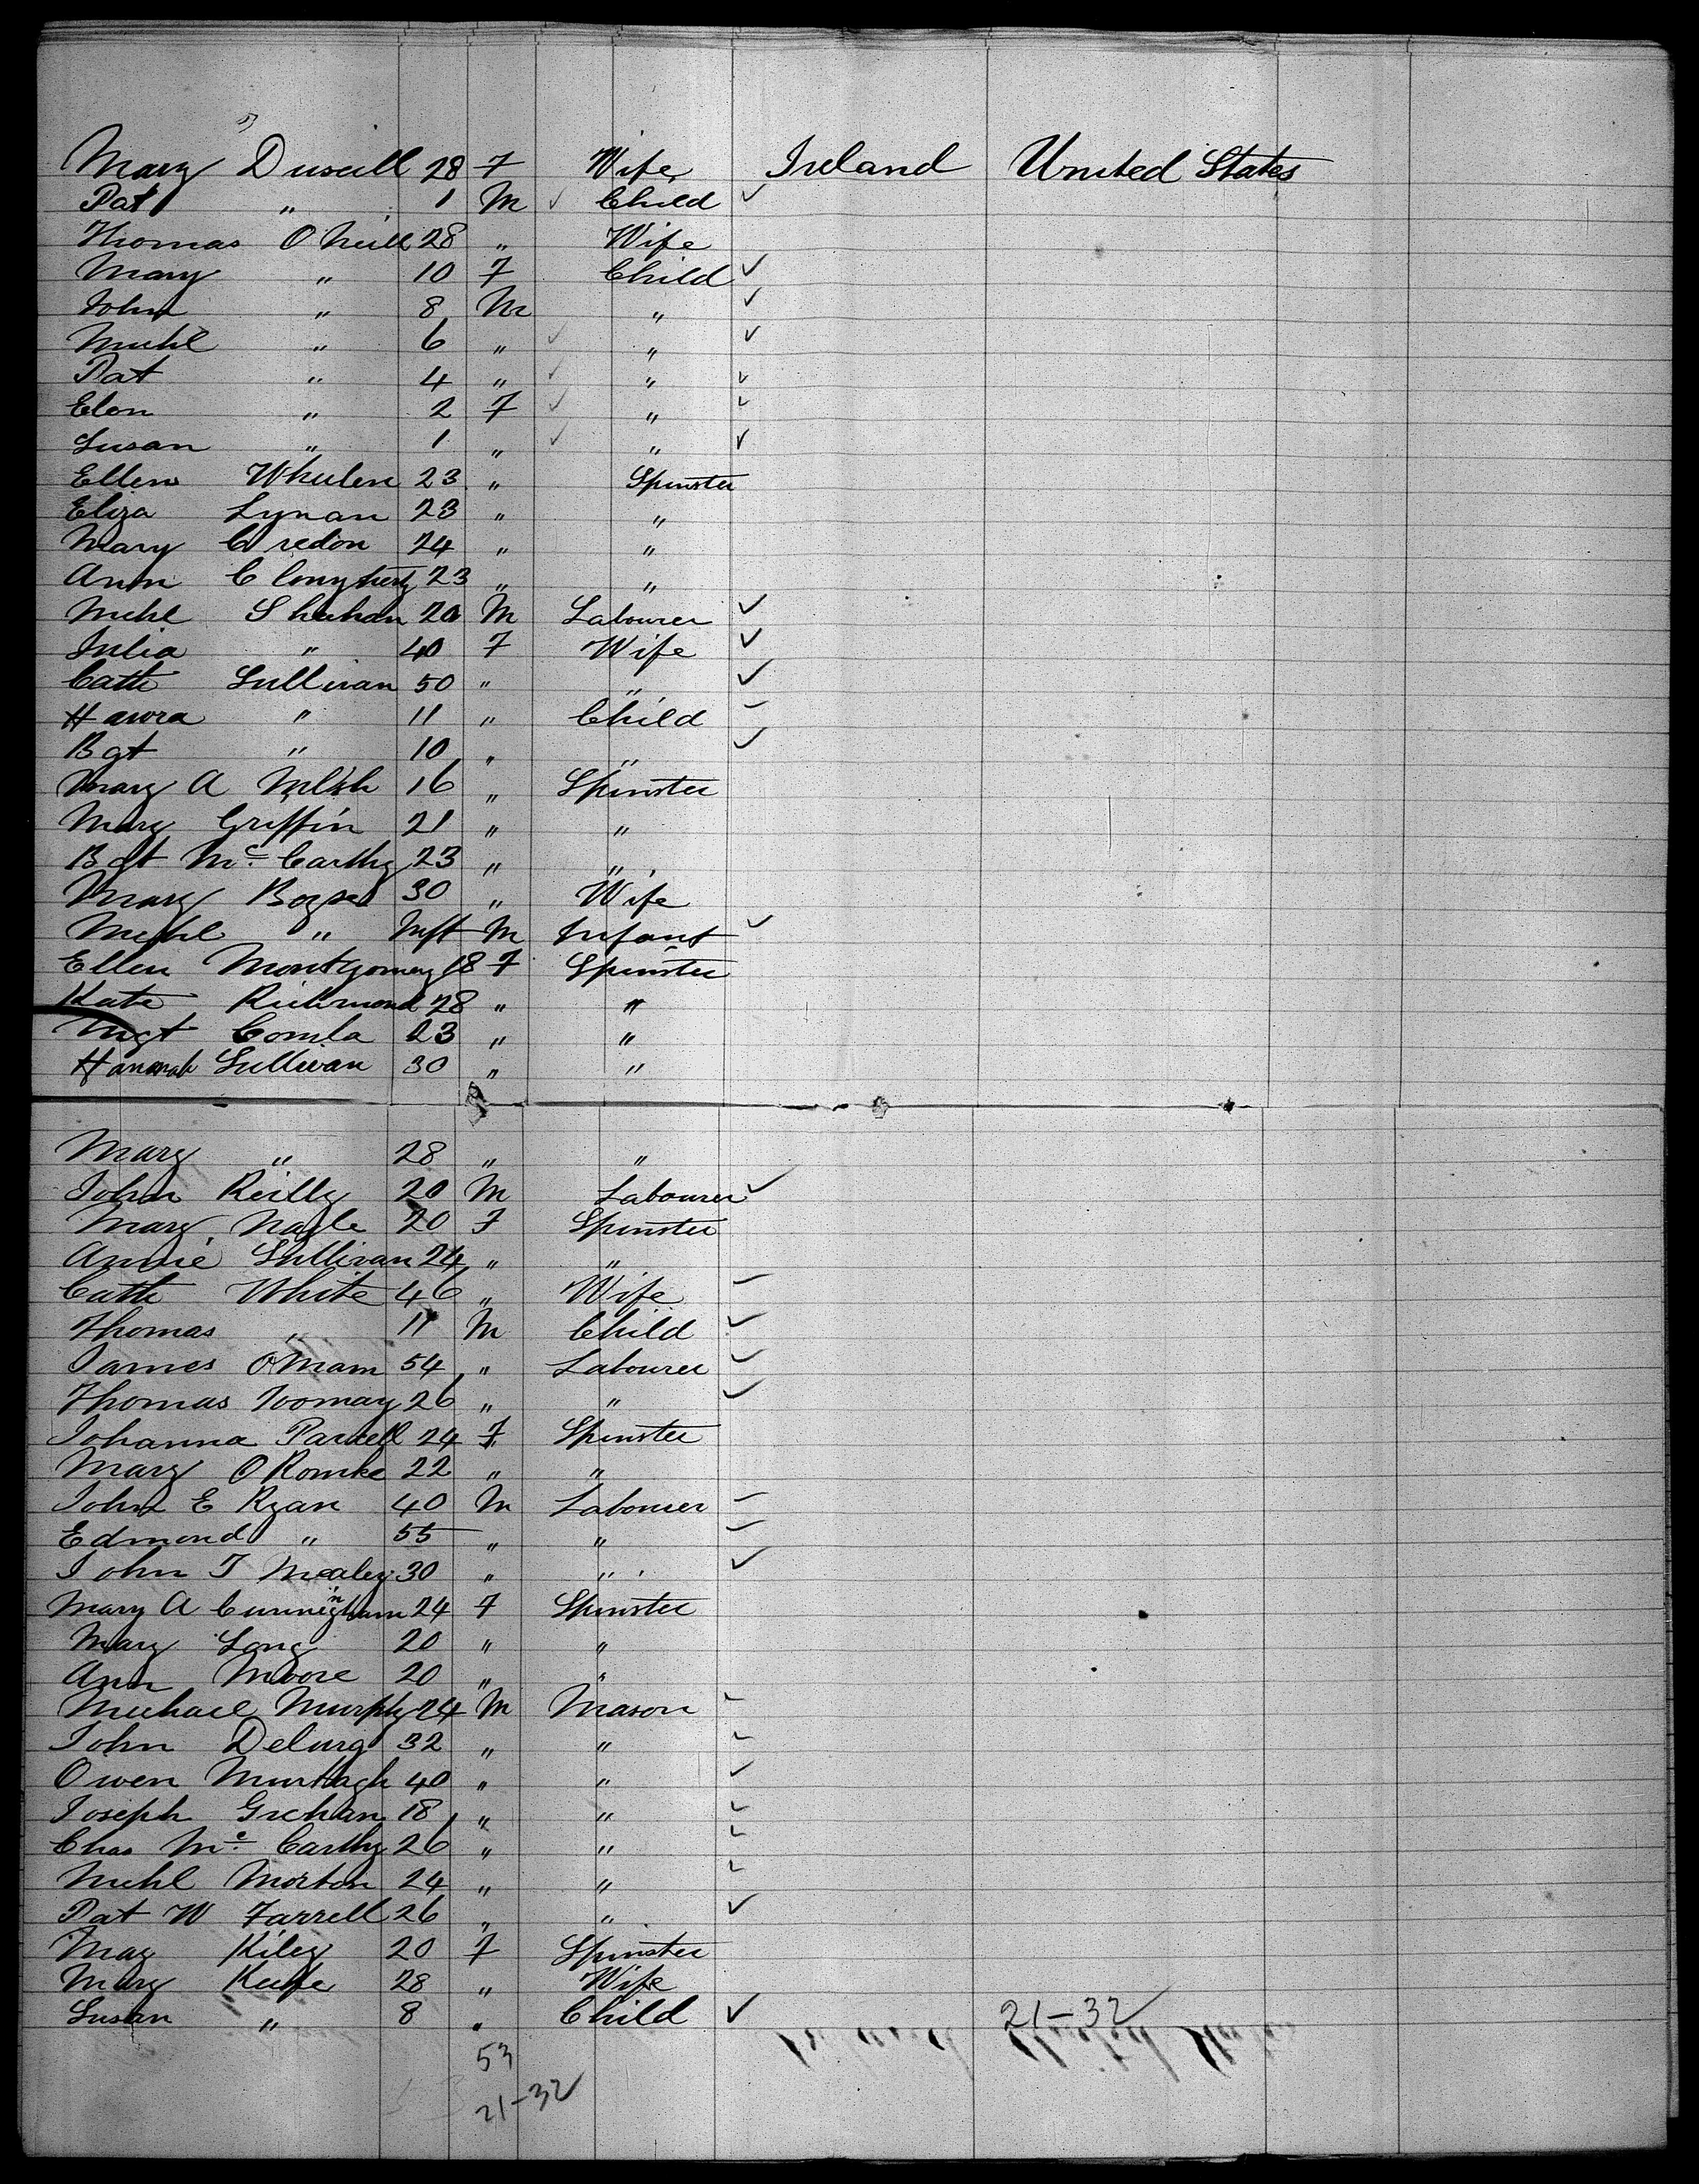 Mary Duscill 28 F Wife Ireland United States
Pat " 1 M ✓ Child ✓
Thomas O Neill 28 " Wife
Mary " 10 F Child ✓
John " 8 M " ✓
Michl " 6 " ✓ " ✓
Pat " 4 " ✓ " ✓
Elen " 2 F ✓ " ✓
Susan " 1 " ✓ " ✓
Ellen Whulen 23 " Spinster
Eliza Lynan 23 " "
Mary Credon 24 " "
Ann 23 " "
Michl Sheehan 20 M Labourer ✓
Julia " 40 F Wife ✓
Cath Sullivan 50 " " ✓
Hanra " 11 " Child ✓
Bgt " 10 " " ✓
Mary A 16 " Spinster
Mary Griffin 21 " "
Bgt Mc Carthy 23 " "
Mary 30 " Wife
Michl " Inft M Infant ✓
Ellen Montgomery 18 F Spinster
Kate Richmond 28 " "
Mgt 23 " "
Hannah Sullivan 30 " "
Mary " 28 " "
John Reilly 20 M Labourer ✓
Mary Nagle 20 F Spinster
Annie Sullivan 24 " "
Cath White 46 " Wife ✓
Thomas " 11 M Child ✓
James OMam 54 " Labourer ✓
Thomas Toomay 26 " " ✓
Johanna 24 F Spinster
Mary O Rourke 22 " "
John E Ryan 40 M Labourer ✓
Edmond " 55 " " ✓
John T Mealey 30 " " ✓
Mary A Cunningham 24 F Spinster
Mary Long 20 " "
Ann Moore 20 " "
Michael Murphy 24 M Mason ✓
John Delurg 32 " " ✓
Owen Murtagh 40 " " ✓
Joseph Grehan 18 " " ✓
Chas Mc Carthy 26 " " ✓
Michl Morton 24 " " ✓
Pat W Farrell 26 " " ✓
May Kiley 20 F Spinster
Mary Keefe 28 " Wife
Susan " 8 " Child ✓ 21-32
53
21-32